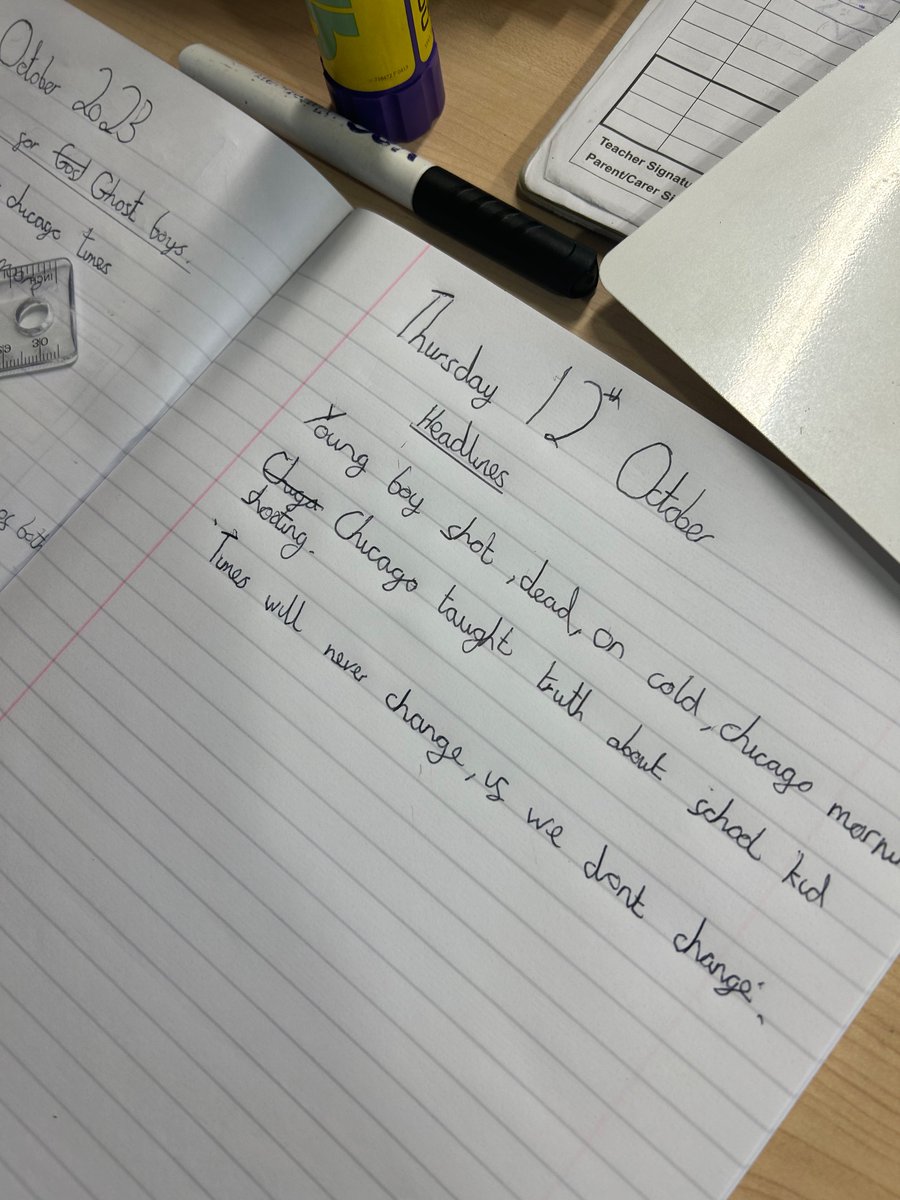 October 2023
for God Ghost boys.
chicago times
30
Teacher Signatu
Parent/Carer Si
Thursday 12th October
Headlines
Young boy shot, dead, on cold, chicago mornin
Chigo Chicago taught truth about school kid
shooting.
Times will never change, if we dont change.